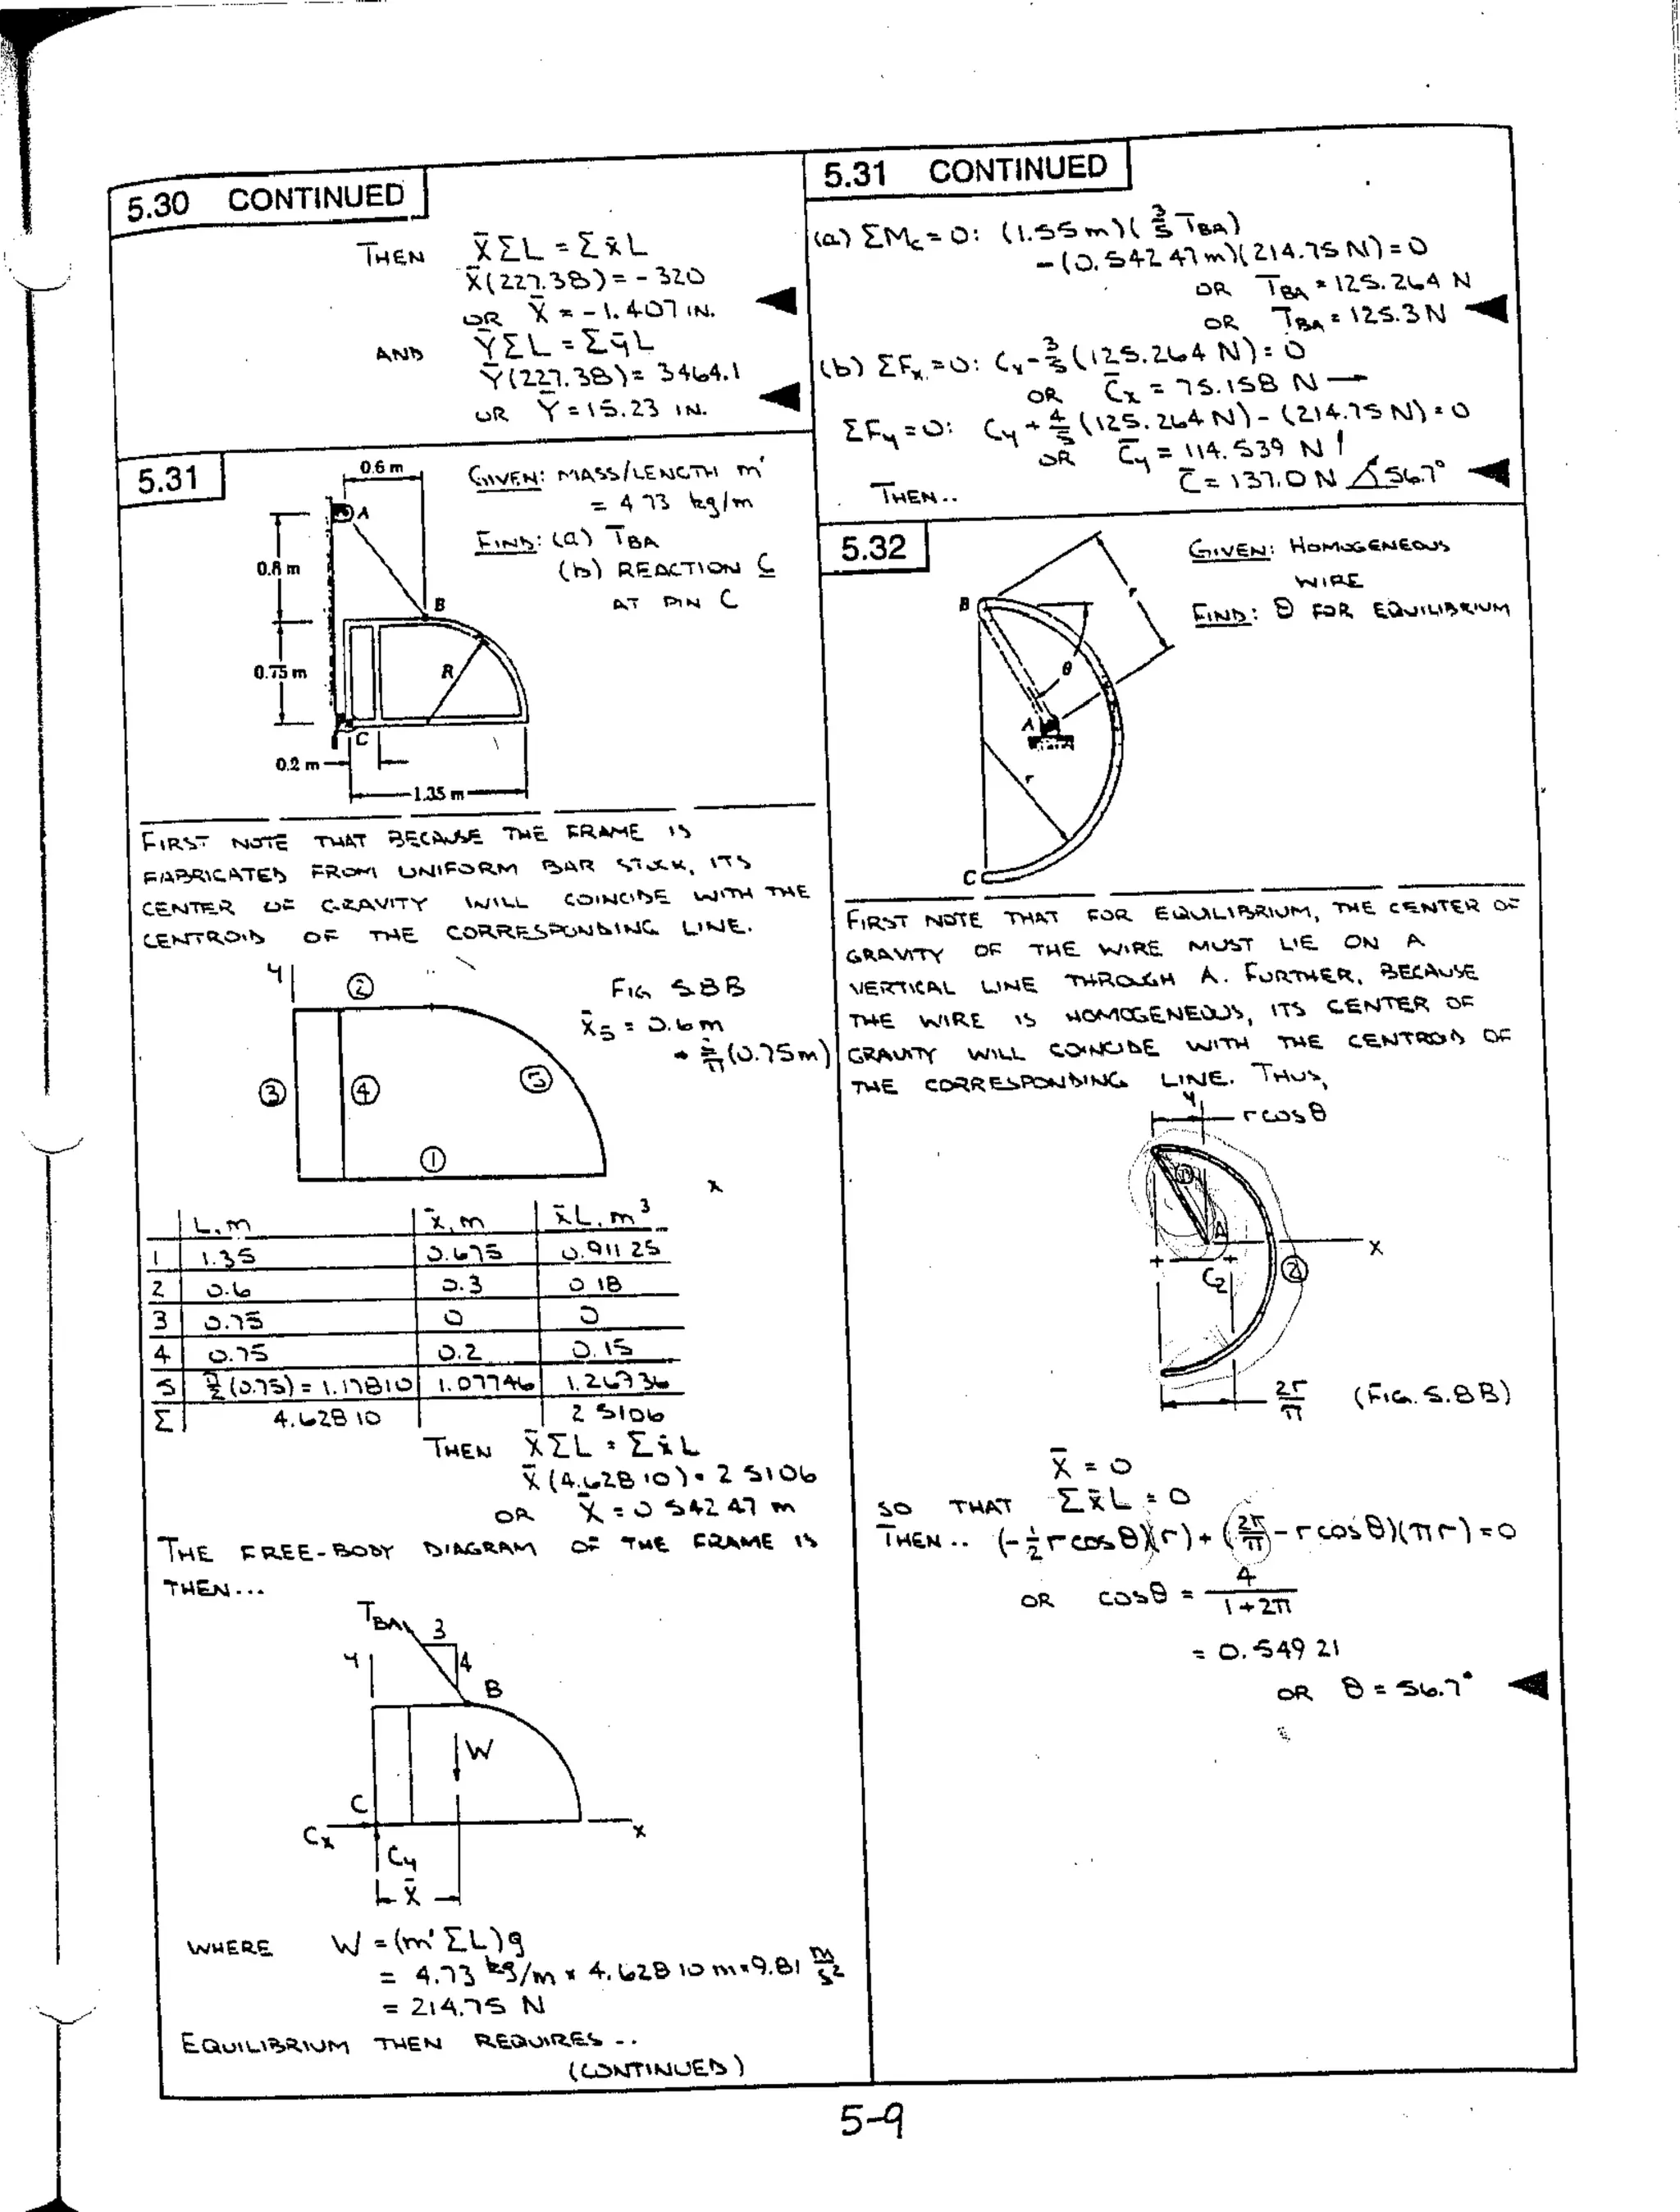 5.30 CONTINUED
THEN X̄ΣL = Σx̄L
X̄(227.38) = - 320
OR X̄ = - 1.407 IN.
AND ȲΣL = ΣȳL
Ȳ(227.38) = 3464.1
OR Ȳ = 15.23 IN.
5.31
0.6 m
A
0.8 m
B
0.75 m
R
C
0.2 m
1.35 m
GIVEN: MASS/LENGTH m'
= 4.73 kg/m
FIND: (a) T_BA
(b) REACTION C
AT PIN C
FIRST NOTE THAT BECAUSE THE FRAME IS
FABRICATED FROM UNIFORM BAR STOCK, ITS
CENTER OF GRAVITY WILL COINCIDE WITH THE
CENTROID OF THE CORRESPONDING LINE.
y
②
FIG 5.8B
x̄5 = 0.6 m
+ 2/π (0.75 m)
③ ④ ⑤
①
x
L, m x̄, m x̄L, m³
1 1.35 0.675 0.91125
2 0.6 0.3 0.18
3 0.75 0 0
4 0.75 0.2 0.15
5 π/2 (0.75) = 1.17810 1.07746 1.26936
Σ 4.62810 2.5106
THEN X̄ΣL = Σx̄L
X̄(4.62810) = 2.5106
OR X̄ = 0.54247 m
THE FREE-BODY DIAGRAM OF THE FRAME IS
THEN...
T_BA 3
y 4
B
W
C
Cx x
Cy
X̄
WHERE W = (m'ΣL)g
= 4.73 kg/m × 4.62810 m × 9.81 m/s²
= 214.75 N
EQUILIBRIUM THEN REQUIRES..
(CONTINUED)
5.31 CONTINUED
(a) ΣMc = 0: (1.55 m)(3/5 T_BA)
- (0.54247 m)(214.75 N) = 0
OR T_BA = 125.264 N
OR T_BA = 125.3 N
(b) ΣFx = 0: Cx - 3/5 (125.264 N) = 0
OR C̄x = 75.158 N →
ΣFy = 0: Cy + 4/5 (125.264 N) - (214.75 N) = 0
OR C̄y = 114.539 N ↑
THEN.. C̄ = 137.0 N ∡56.7°
5.32
B
r
θ
A
r
C
GIVEN: HOMOGENEOUS
WIRE
FIND: θ FOR EQUILIBRIUM
FIRST NOTE THAT FOR EQUILIBRIUM, THE CENTER OF
GRAVITY OF THE WIRE MUST LIE ON A
VERTICAL LINE THROUGH A. FURTHER, BECAUSE
THE WIRE IS HOMOGENEOUS, ITS CENTER OF
GRAVITY WILL COINCIDE WITH THE CENTROID OF
THE CORRESPONDING LINE. THUS,
y
r cos θ
①
A
x
C2 ②
2r/π (FIG. 5.8B)
X̄ = 0
SO THAT Σx̄L = 0
THEN.. (-1/2 r cos θ)(r) + (2r/π - r cos θ)(πr) = 0
OR cos θ = 4/(1+2π)
= 0.54921
OR θ = 56.7°
5-9